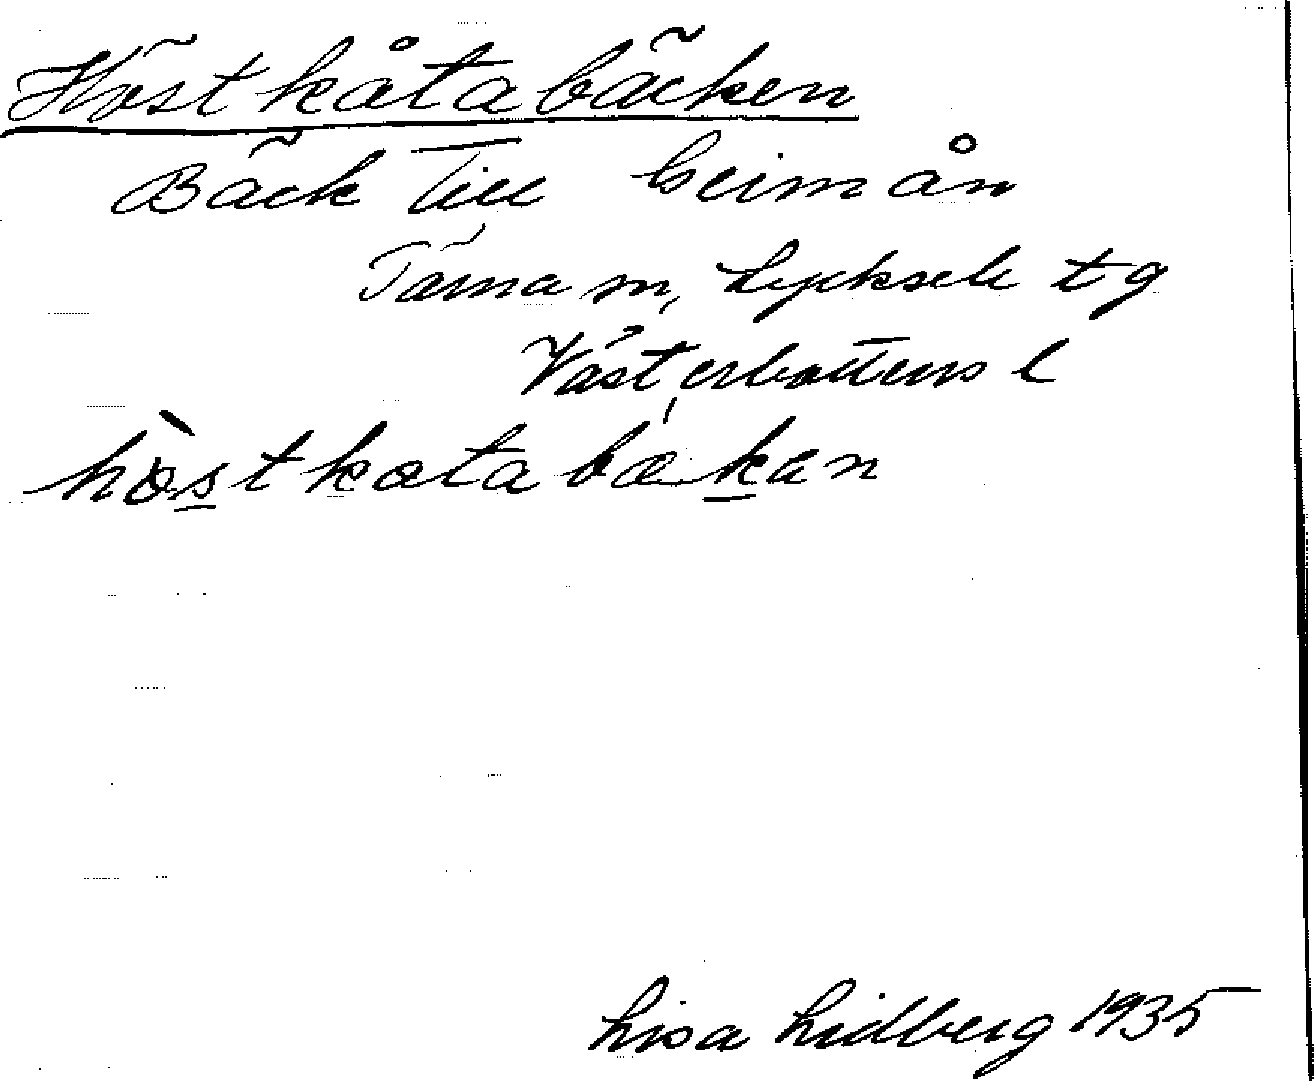 Höstkåtabäcken
Bäck till Geimån
Tärna sn, Lycksele tg
Västerbottens l
hòstkåtabækan
Lisa Lidberg 1935